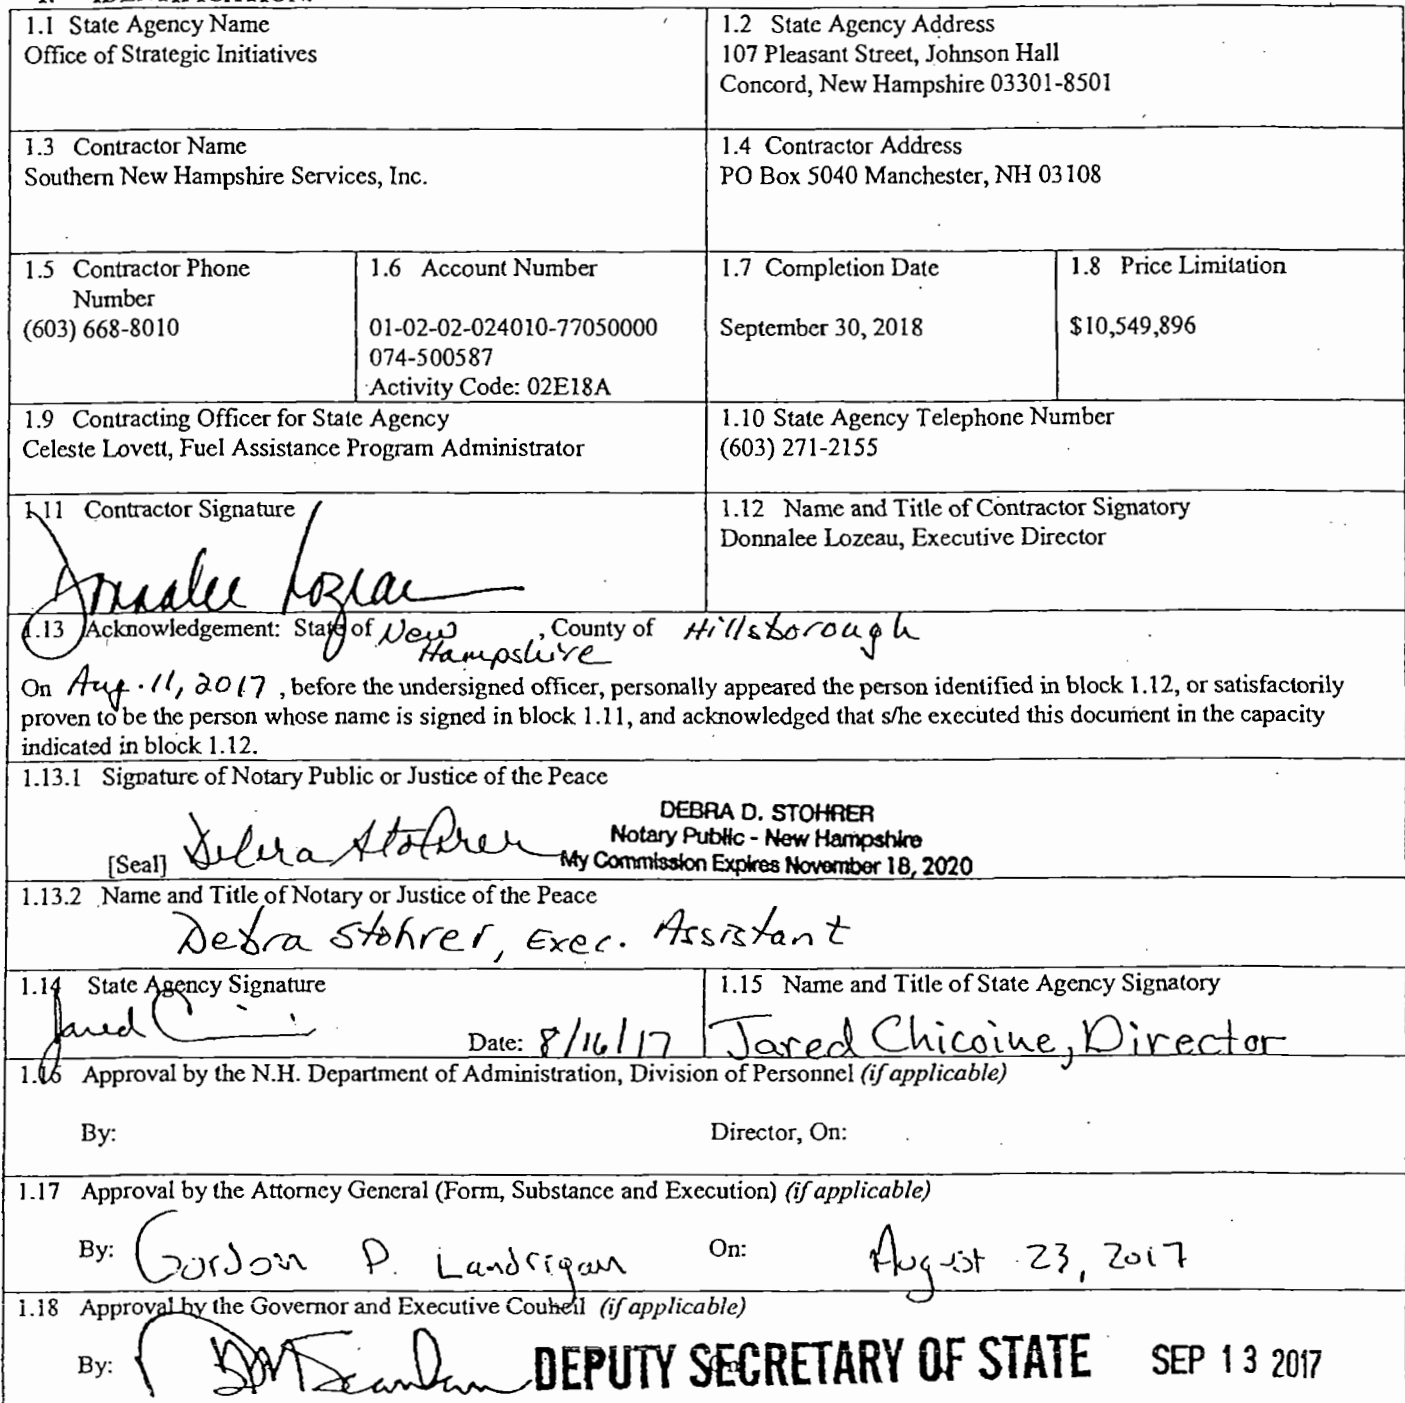 1. IDENTIFICATION.
1.1 State Agency Name
Office of Strategic Initiatives
1.2 State Agency Address
107 Pleasant Street, Johnson Hall
Concord, New Hampshire 03301-8501
1.3 Contractor Name
Southern New Hampshire Services, Inc.
1.4 Contractor Address
PO Box 5040 Manchester, NH 03108
1.5 Contractor Phone
Number
(603) 668-8010
1.6 Account Number
01-02-02-024010-77050000
074-500587
Activity Code: 02E18A
1.7 Completion Date
September 30, 2018
1.8 Price Limitation
$10,549,896
1.9 Contracting Officer for State Agency
Celeste Lovett, Fuel Assistance Program Administrator
1.10 State Agency Telephone Number
(603) 271-2155
1.11 Contractor Signature
Donnalee Lozeau
1.12 Name and Title of Contractor Signatory
Donnalee Lozeau, Executive Director
1.13 Acknowledgement: State of New Hampshire, County of Hillsborough
On Aug. 11, 2017, before the undersigned officer, personally appeared the person identified in block 1.12, or satisfactorily
proven to be the person whose name is signed in block 1.11, and acknowledged that s/he executed this document in the capacity
indicated in block 1.12.
1.13.1 Signature of Notary Public or Justice of the Peace
[Seal] Debra Stohrer
DEBRA D. STOHRER
Notary Public - New Hampshire
My Commission Expires November 18, 2020
1.13.2 Name and Title of Notary or Justice of the Peace
Debra Stohrer, Exec. Assistant
1.14 State Agency Signature
Jared Date: 8/16/17
1.15 Name and Title of State Agency Signatory
Jared Chicoine, Director
1.16 Approval by the N.H. Department of Administration, Division of Personnel (if applicable)
By: Director, On:
1.17 Approval by the Attorney General (Form, Substance and Execution) (if applicable)
By: Gordon P. Landrigan On: August 23, 2017
1.18 Approval by the Governor and Executive Council (if applicable)
By: DEPUTY SECRETARY OF STATE SEP 13 2017